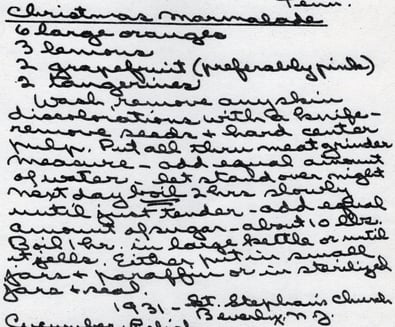 Tenn.
Christmas Marmalade
6 large oranges
3 lemons
2 grapefruit (preferably pink)
2 tangerines
Wash, remove any skin
discolorations with a knife -
remove seeds + hard center
pulp. Put all thru meat grinder
measure - add equal amount
of water - let stand over night
next day boil 2 hrs slowly
until just tender - add equal
amount of sugar - about 10 lbs.
Boil 1 hr. in large kettle or until
it jells. Either put in small
jars + paraffin or in sterilized
jars + seal.
1931 - St. Stephan's Church
Beverly, N.J.
Cucumber Relish